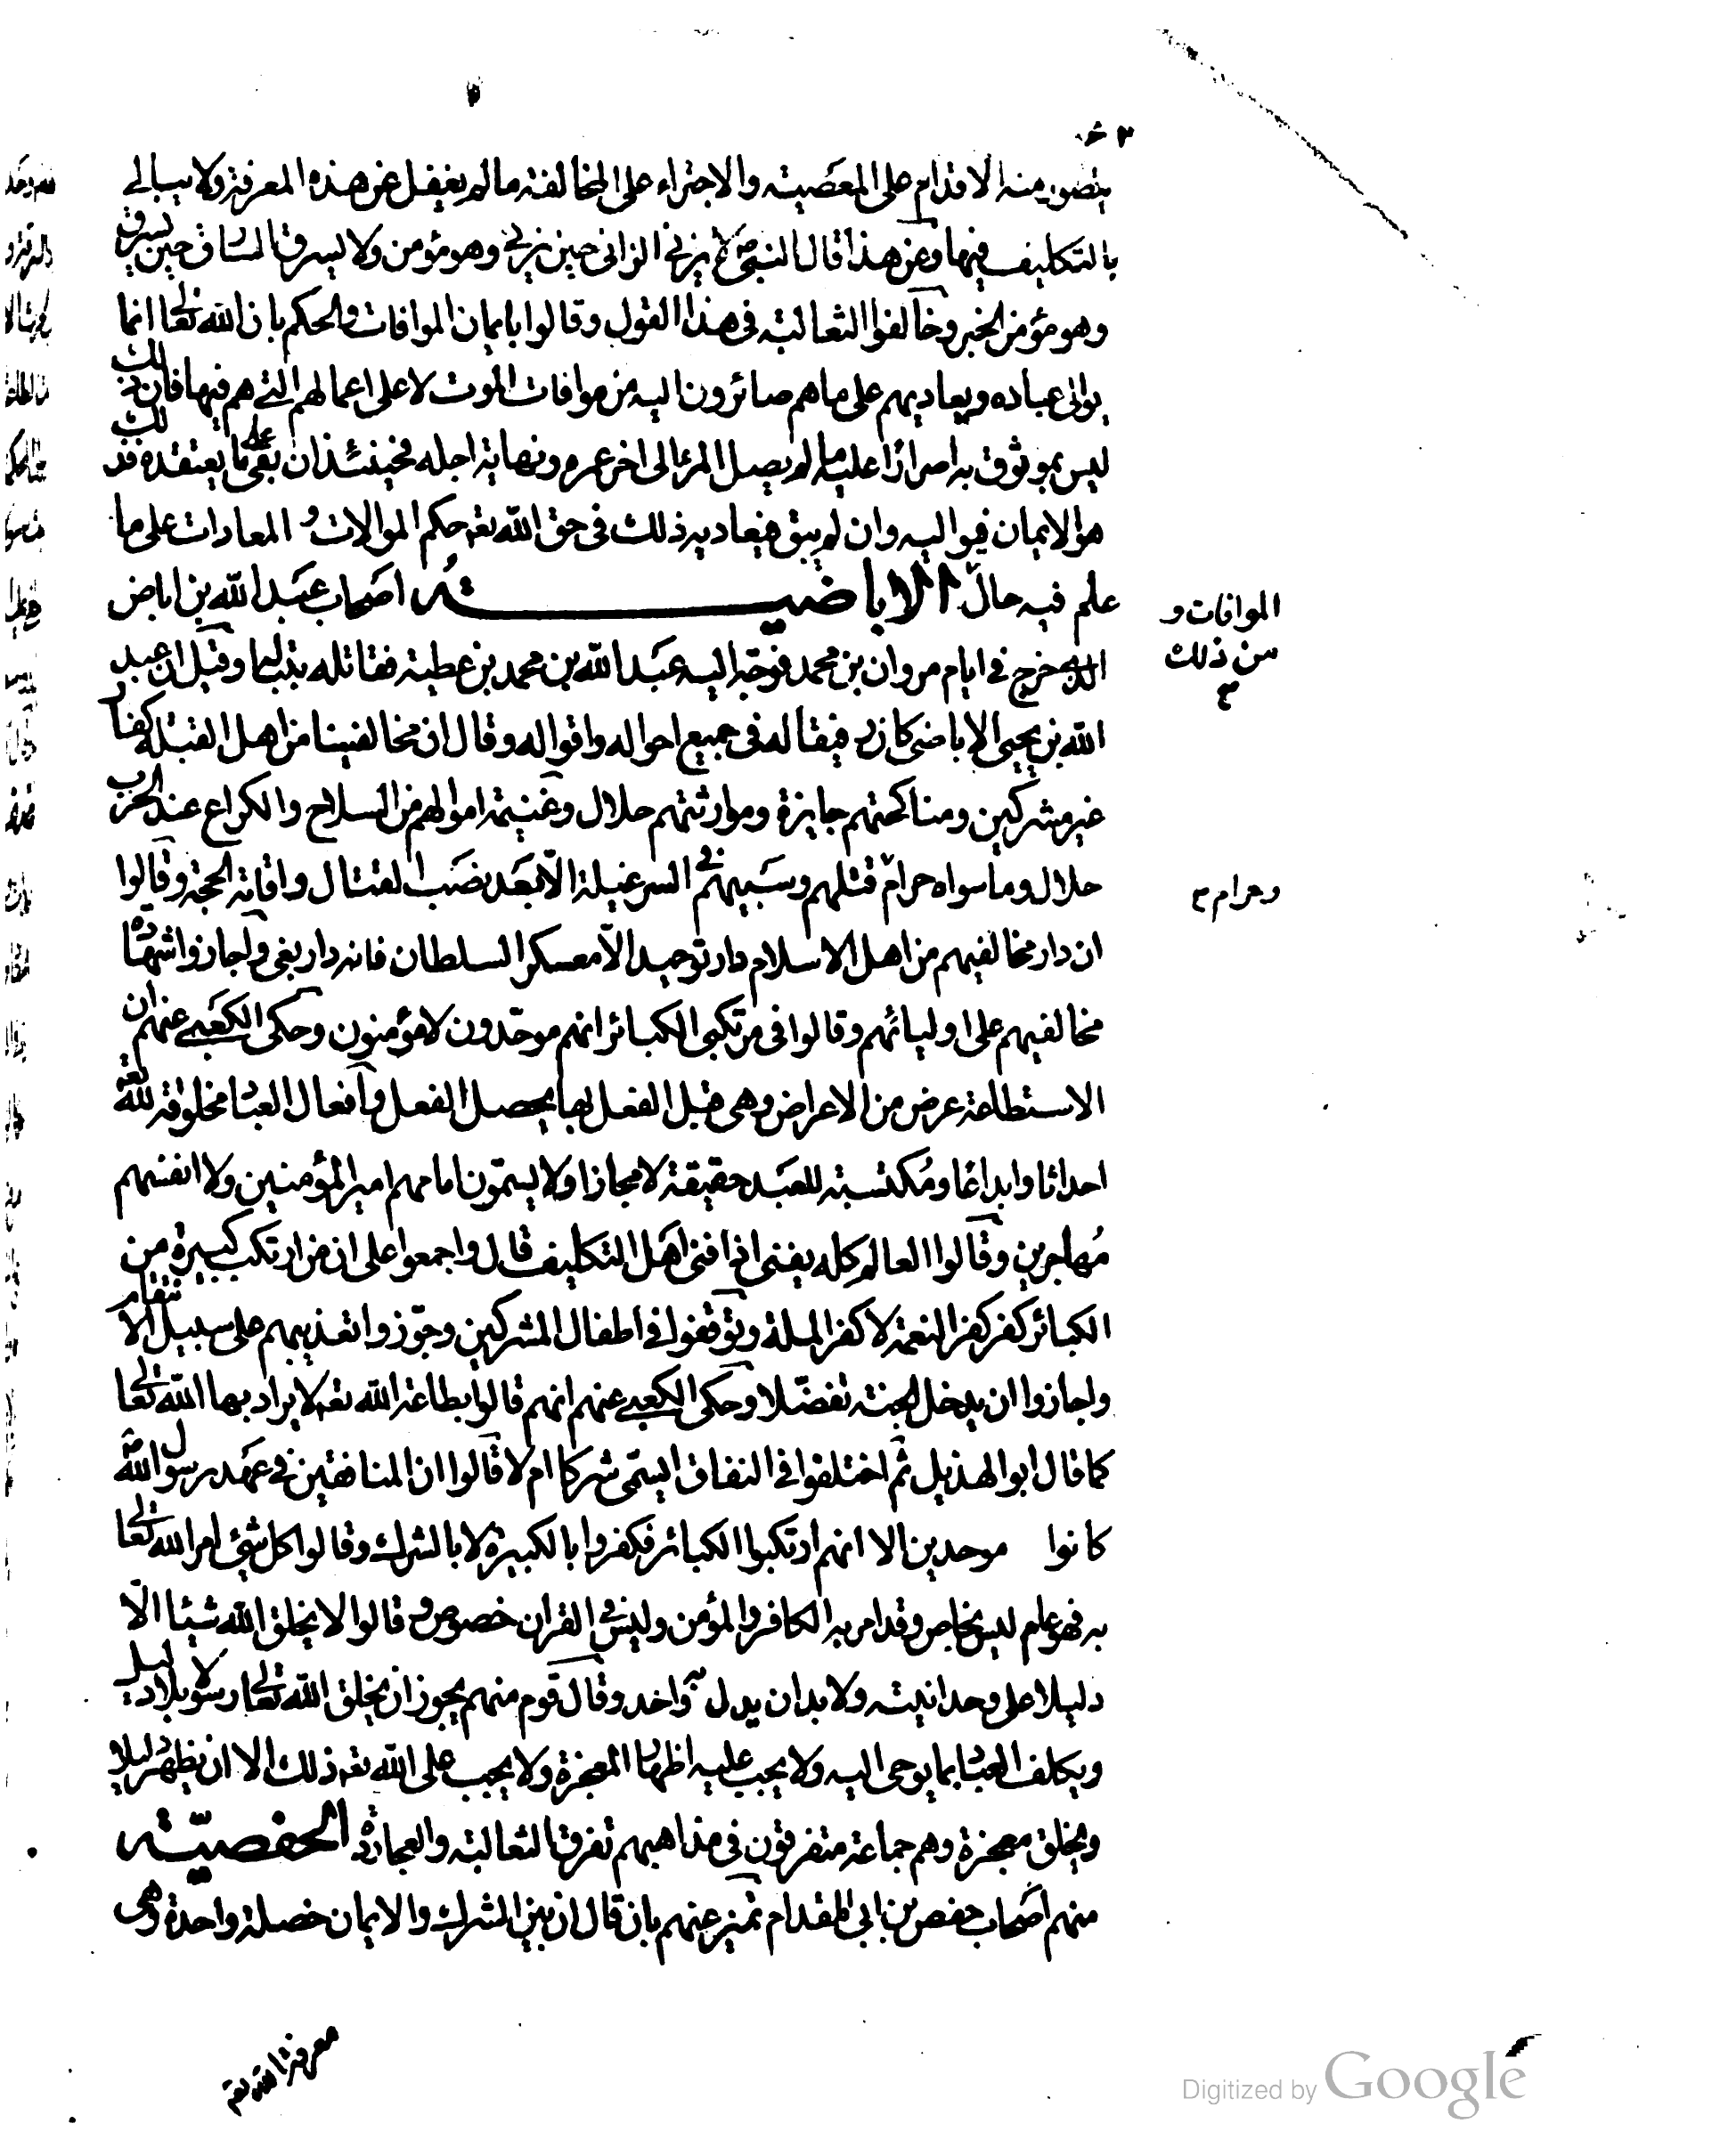 يتصور منه الاقدام على المعصيته والاجتراء على المخالفته ما لم يغفل عن هذه المعرفة ولا يبالي
بالتكليف فيها وعن هذا قال النبي ص لا يزني الزاني حين يزني وهو مؤمن ولا يسرق السارق حين يسرق
وهو مؤمن الخبر وخالفوا الثعالبته في هذا القول وقالوا بايمان الموافات والحكم بان الله تعالى انما
يوالى عباده ويعاديهم على ما هم صائرون اليه من موافات الموت لا على اعمالهم التي هم فيها فان ذلك
ليس بموثوق به اصرارا عليه ما لم يصل المرء الى اخر عمره ونهاية اجله فحينئذ ان بقى على ما يعتقده فذلك
هو الايمان فيواليه وان لم يبق فيعاديه ذلك في حق الله تعه حكم الموالات و المعادات على ما
علم فيه حال الاباضيته اصحاب عبد الله بن اباض
الموافات و
من ذلك
الذي خرج في ايام مروان بن محمد فوجه اليه عبد الله بن محمد بن عطية فقاتله بتباله وقيل ان عبد
الله بن يحيى الاباضى كان رفيقا له في جميع احواله واقواله وقال ان مخالفينا من اهل القبلة كفار
غير مشركين ومناكحتهم جايزة وموارثتهم حلال وغنيمة اموالهم من السلاح والكراع عند الحرب
حلال وما سواه حرام قتلهم وسبيهم في السر غيلة الا بعد نصب القتال واقامة الحجة وقالوا
وحرام
ان دار مخالفيهم من اهل الاسلام دار توحيد الا معسكر السلطان فانه دار بغي واجازوا شهادة
مخالفيهم على اوليائهم وقالوا في مرتكبى الكبائر انهم موحدون لا مؤمنون وحكى الكعبي عنهم ان
الاستطاعة عرض من الاعراض وهي قبل الفعل بها يحصل الفعل وافعال العباد مخلوقة لله تعه
احداثا وابداعا ومكتسبته للعبد حقيقة لا مجازا ولا يسمون امامهم امير المؤمنين ولا انفسهم
مهاجرين وقالوا العالم كله يفنى اذا فنى اهل التكليف قال واجمعوا على ان من ارتكب كبيرة من
الكبائر كفر كفر النعمة لا كفر الملة وتوقفوا في اطفال المشركين وجوزوا تعذيبهم على سبيل الانتقام
واجازوا ان يدخل الجنته تفضلا وحكى الكعبي عنهم انهم قالوا بطاعة الله تعه لا يراد بها الله تعالى
كما قال ابو الهذيل ثم اختلفوا في النفاق ايسمى شركا ام لا قالوا ان المنافقين في عهد رسول الله ص
كانوا موحدين الا انهم ارتكبوا الكبائر فكفروا بالكبيرة لا بالشرك وقالوا كل شئ امر الله تعالى
به فهو عام ليس بخاص وقد امر به الكافر والمؤمن وليس في القران خصوص وقالوا لا يخلق الله شيئا الا
دليلا على وحدانيته ولا بد ان يدل به واحد وقال قوم منهم يجوز ان يخلق الله تعالى رسولا بلا دليل
ويكلف العباد بما يوحى اليه ولا يجب عليه اظهار المعجزة ولا يجب على الله تعه ذلك الا ان يظهر دليلا
ويخلق معجزة وهم جماعة متفرقون في مذاهبهم تفرق الثعالبته والعجاردة الحفصيته
منهم اصحاب حفص بن ابى المقدام تميز عنهم بان قال ان بين الشرك والايمان خصلة واحدة وهى
معرفة الله تعه
Digitized by Google